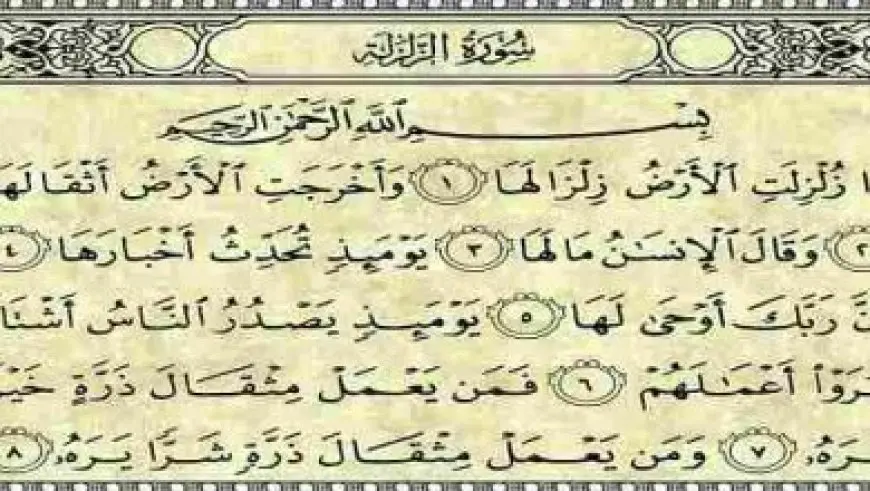 سُورَةُ الزَّلْزَلَةِ
بِسْمِ ٱللَّهِ ٱلرَّحْمَٰنِ ٱلرَّحِيمِ
ا زُلْزِلَتِ ٱلْأَرْضُ زِلْزَالَهَا ١ وَأَخْرَجَتِ ٱلْأَرْضُ أَثْقَالَهَا
٢ وَقَالَ ٱلْإِنسَٰنُ مَا لَهَا ٣ يَوْمَئِذٍ تُحَدِّثُ أَخْبَارَهَا ٤
نَّ رَبَّكَ أَوْحَىٰ لَهَا ٥ يَوْمَئِذٍ يَصْدُرُ ٱلنَّاسُ أَشْتَا
رَوْا۟ أَعْمَٰلَهُمْ ٦ فَمَن يَعْمَلْ مِثْقَالَ ذَرَّةٍ خَيْ
رَهُۥ ٧ وَمَن يَعْمَلْ مِثْقَالَ ذَرَّةٍ شَرًّا يَرَهُۥ ٨